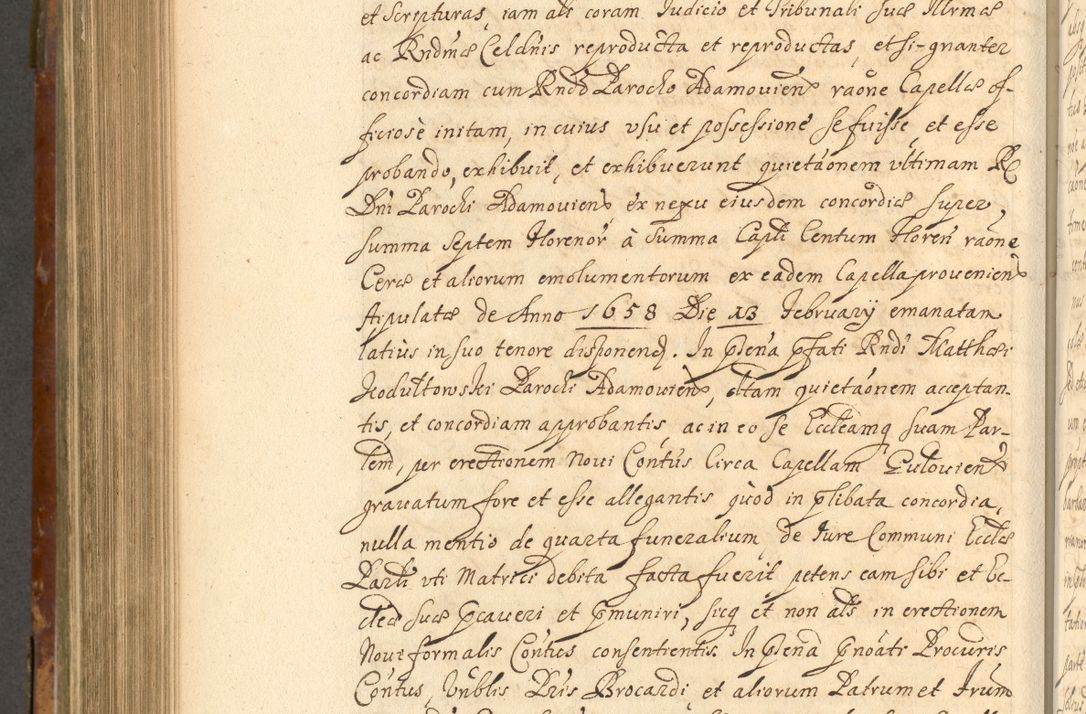 et Scripturas, iam als coram Iudicio et Tribunali suæ Illrmæ
ac Rndmæ Celdnis reproducta et reproductas, et si-gnanter
concordiam cum Rndo Parocho Adamovien raõne Capellæ of-
ficiosè initam, in cuius vsu et possessione se fuisse, et esse
probando, exhibuit, et exhibuerunt quietãonem vltimam R
Dni Parochi Adamovien ex nexu eiusdem concordiæ super
summa septem Florenor à summa Capli Centum Floren raõne
Ceræ et aliorum emolumentorum ex eadem Capella provenien
stipulatæ de Anno 1658 Die 13 February emanatam
latiùs in suo tenore disponen. In pñtia pfati Rndi Matthæi
Kodultowski Parochi Adamovien, ittam quietãonem acceptan-
tis, et concordiam approbantis ac in eo se Eccleamq suam Par-
lem, per erectionem Noui Contus Circa Capellam Gulovien
grauatum fore et esse allegantis quòd in plibata concordia,
nulla mentio de quarta funeralium de Iure Communi Ecclæ
Parli vti Matrici debita facta fuerit petens eam sibi et Ec-
cleæ suæ pcaveri et pmuniri, sicq et non als in erectionem
Noui formalis Contus consentientis. In pñtia pnoãti Procuris
Contus, Vnblis Pris Brocardi et aliorum Patrum et Frum